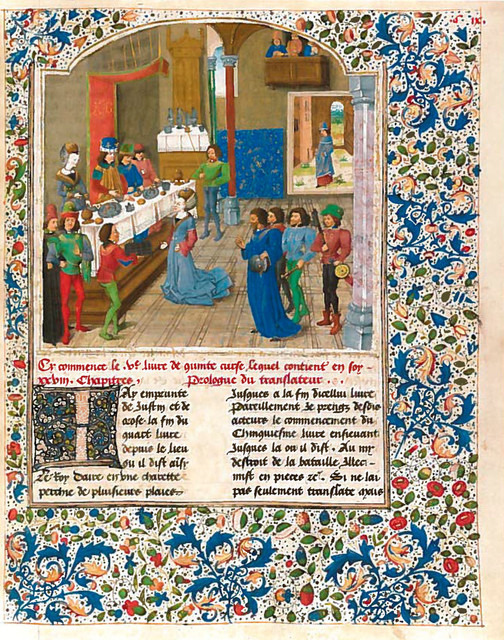 Cy commence le .ve. livre de quinte curse, lequel contient en soy -
xxviii. Chapitres, Prologue du translateur
Jay emprunte
de Justin et de
la fin du
quart livre
depuis le lieu
ou il dist ainsi
Le Roy Daire en une charette
perchie de plusieurs plaies
Jusques a la fin dicellui livre
Pareillement Je prengz desdis
acteurs le commencement du
Chinquiesme livre ensievant
Jusques la ou il dist. Au my
destroit de la bataille
mist en pieces &c. Si ne lai
pas seulement translate mais